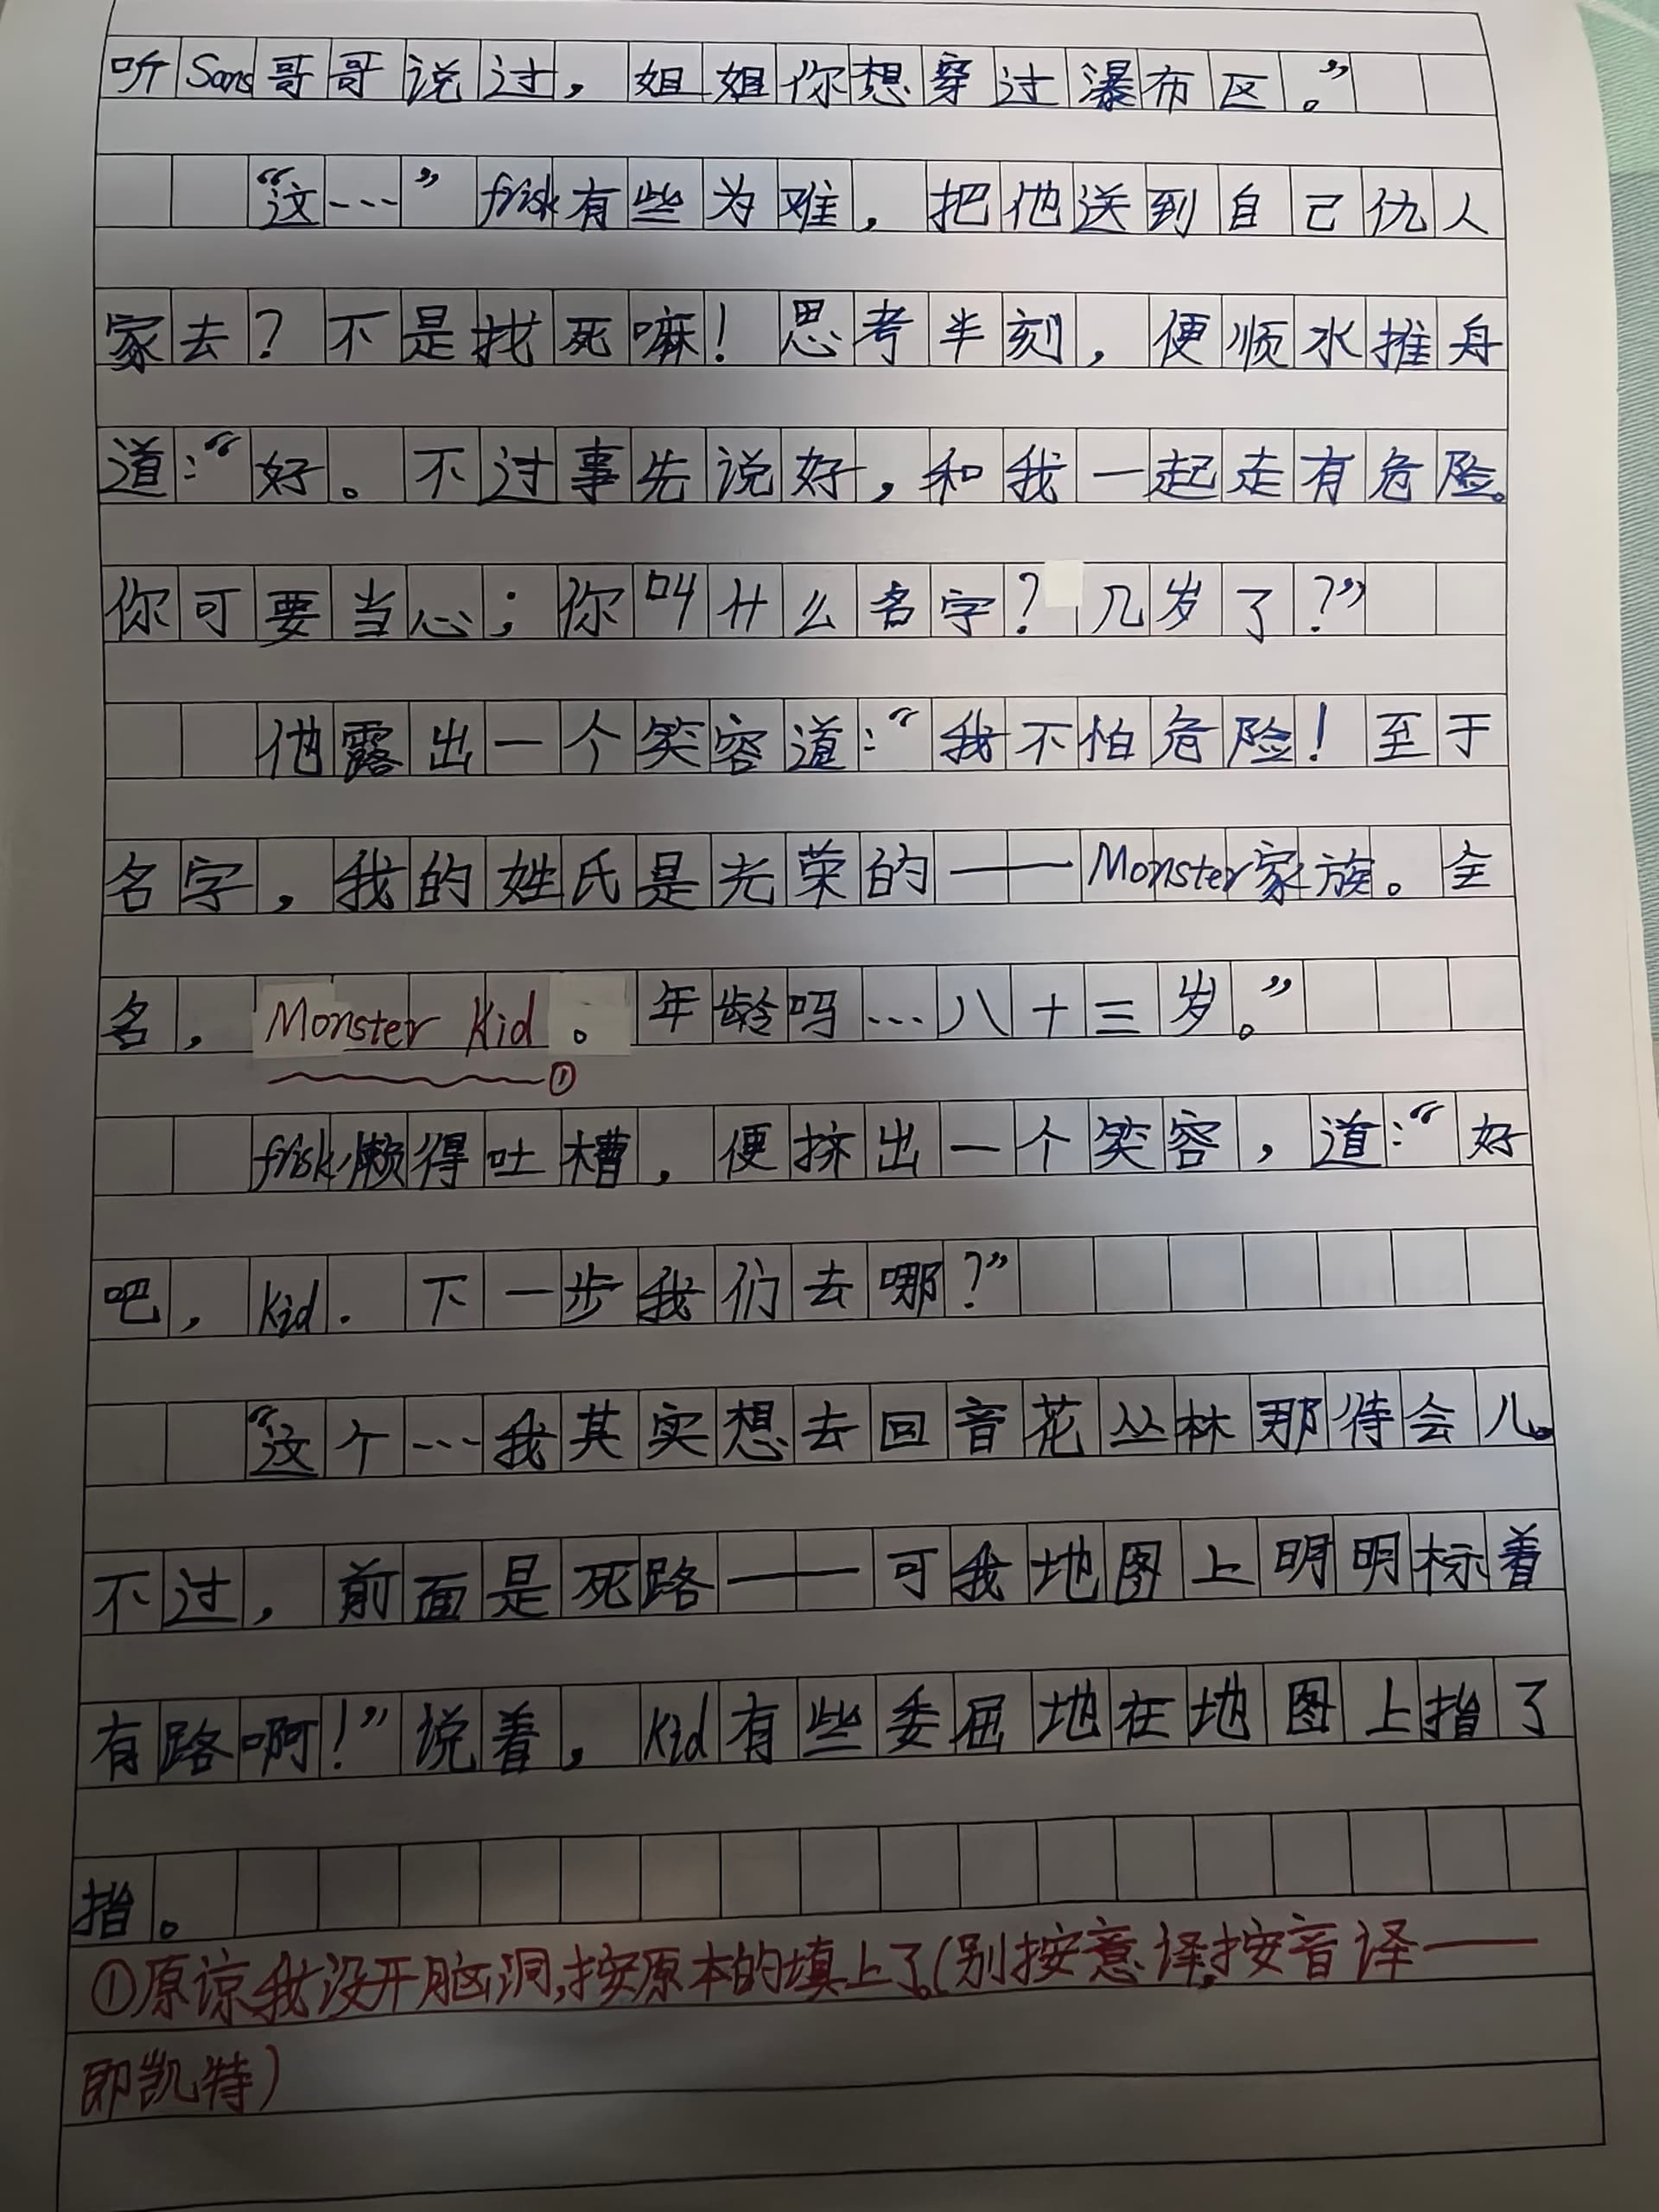 听Sans哥哥说过，姐姐你想穿过瀑布区。”
“这…”frisk有些为难，把他送到自己仇人
家去？不是找死嘛！思考半刻，便顺水推舟
道：“好。不过事先说好，和我一起走有危险。
你可要当心；你叫什么名字？几岁了？”
他露出一个笑容道：“我不怕危险！至于
名字，我的姓氏是光荣的——Monster家族。全
名，Monster Kid。年龄吗…八十三岁。”
①
frisk懒得吐槽，便挤出一个笑容，道：“好
吧，Kid.下一步我们去哪？”
“这个…我其实想去回音花丛林那待会儿。
不过，前面是死路——可我地图上明明标着
有路啊！”说着，Kid有些委屈地在地图上指了
指。
①原谅我没开脑洞,按原本的填上了。(别按意译,按音译——
即凯特)